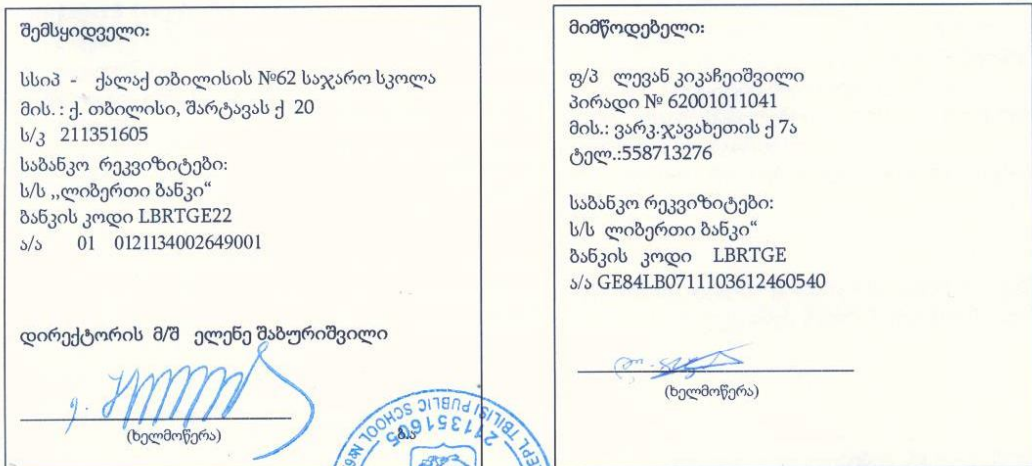 შემსყიდველი:
სსიპ - ქალაქ თბილისის №62 საჯარო სკოლა
მის. : ქ. თბილისი, შარტავას ქ 20
ს/კ 211351605
საბანკო რეკვიზიტები:
ს/ს ,,ლიბერთი ბანკი“
ბანკის კოდი LBRTGE22
ა/ა 01 0121134002649001
დირექტორის მ/შ ელენე შაბურიშვილი
(ხელმოწერა)
ბ.ა
TBILISI PUBLIC SCHOOL
211351605
მიმწოდებელი:
ფ/პ ლევან კიკაჩეიშვილი
პირადი № 62001011041
მის.: ვარკ.ჯავახეთის ქ 7ა
ტელ.:558713276
საბანკო რეკვიზიტები:
ს/ს ლიბერთი ბანკი“
ბანკის კოდი LBRTGE
ა/ა GE84LB0711103612460540
(ხელმოწერა)